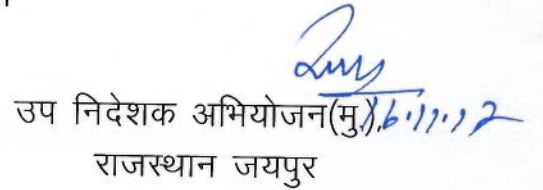 उप निदेशक अभियोजन(मु.),
राजस्थान जयपुर